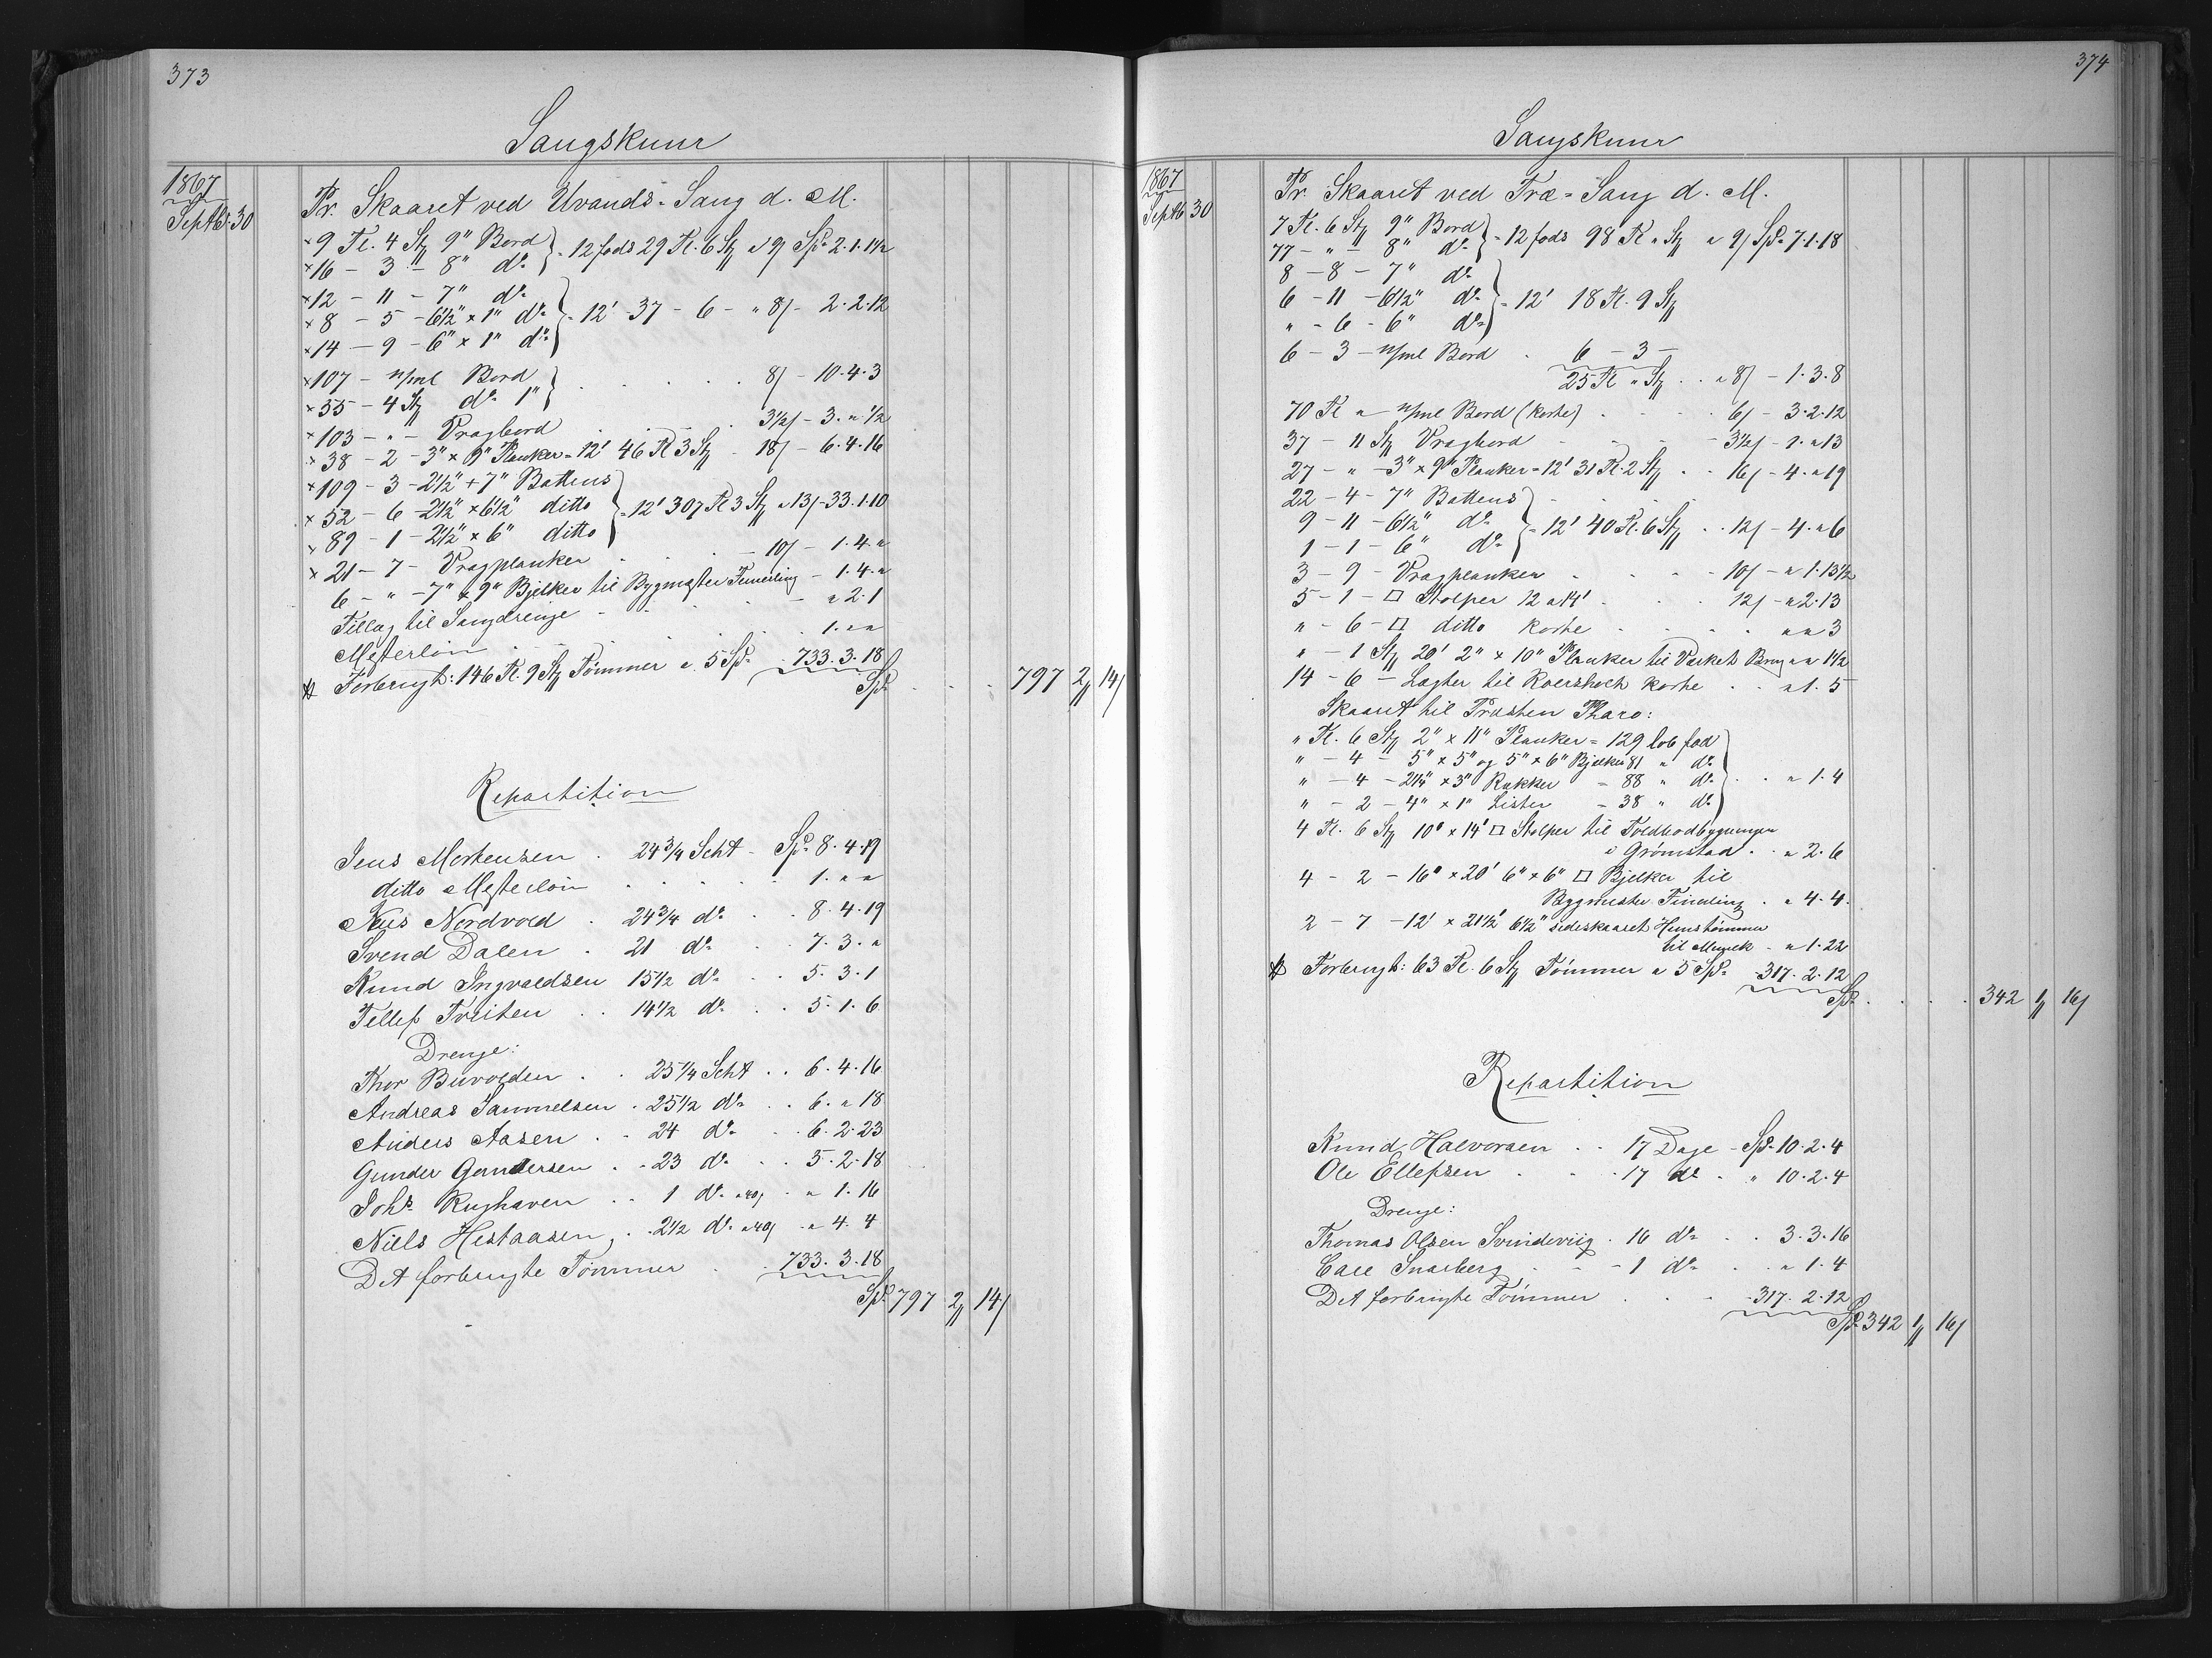 373
Saugskuur
1867
Septbr 30
Pr. Skaaret ved Uvands-Saug d. M.
× 9 Tl. 4 Stz 9" Bord } = 12 fods 29 Tl. 6 Stz a 9/ Spd 2. 1. 1 1/2
× 16 - 3 - 8" do
× 12 - 11 - 7" do
× 8 - 5 - 6 1/2" × 1" do } = 12' 37 - 6 - " 8/ - 2. 2. 12
× 14 - 9 - 6" × 1" do
× 107 - u/ml Bord } . . . . . 8/ - 10. 4. 3
× 35 - 4 Stz do 1"
× 103 - " - Vragbord . . . . 3 1/2/ - 3. " 1/2
× 38 - 2 - 3" × 9" Planker = 12' 46 Tl 3 Stz - 18/ - 6. 4. 16
× 109 - 3 - 2 1/2" + 7" Battens
× 52 - 6 - 2 1/2" × 6 1/2" ditto } = 12' 307 Tl 3 Stz a 13/ - 33. 1. 10
× 89 - 1 - 2 1/2" × 6" ditto
× 21 - 7 - Vragplanker . . . - 10/ - 1. 4. "
6 - " - 7" × 9" Bjelker til Bygmester - 1. 4. "
Tillæg til Saugdrenge - - " 2. 1
Mesterløn . . . 1. " "
# Forbrugt: 146 Tl. 9 Stz Tømmer a 5 Spd 733. 3. 18
Spd . . . 797 2 14/
Repartition
Jens Mortensen . 24 3/4 Scht - Spd 8. 4. 19
ditto Mesterløn . . . . 1. " "
Nils Nordvold . 24 3/4 do . . 8. 4. 19
Svend Dalen . 21 do . . 7. 3. "
Knud Ingvaldsen 15 1/2 do . . 5. 3. 1
Tellef Tveiten . . 14 1/2 do . . 5. 1. 6
Drenge:
Thor Buvolden . . 25 1/4 Scht . . 6. 4. 16
Andreas Sammelsen . 25 1/2 do . . 6. " 18
Anders Aasen . . 24 do . . 6. 2. 23
Gunder Gundersen . . 23 do . . 5. 2. 18
Johs Rughaven . . 1 do a 40/ . " 1. 16
Niels Hestaasen . . 2 1/2 do a 40/ . " 4. 4
Det forbrugte Tømmer . . 733. 3. 18
Spd 797 2 14/
374
Saugskuur
1867
Septb 30
Pr. Skaaret ved Træ-Saug d. M.
7 Tl. 6 Stz 9" Bord } = 12 fods 98 Tl " Stz a 9/ Spd 7. 1. 18
77 - " - 8" do
8 - 8 - 7" do
6 - 11 - 6 1/2" do } = 12' 18 Tl. 9 Stz
" - 6 - 6" do
6 - 3 - u/ml Bord . 6 - 3 -
25 Tl " Stz . . a 8/ - 1. 3. 8
70 Tl " u/ml Bord (korte) . . . 6/ - 3. 2. 12
37 - 11 Stz Vragbord - - - 3 1/2/ - 1. " 13
27 - " - 3" × 9" Planker = 12' 31 Tl. 2 Stz . . 16/ - 4. " 19
22 - 4 - 7" Battens
9 - 11 - 6 1/2" do } = 12' 40 Tl. 6 Stz . . 12/ - 4. " 6
1 - 1 - 6" do
3 - 9 - Vragplanker . . . 10/ - " 1. 13 1/2
5 - 1 - □ Stolper 12 a 14' . . 12/ - " 2. 13
" - 6 - □ ditto korte . . . . " " 3
" - 1 Stz 20' 2" × 10" Planker til Værkets Brug " " 1 1/2
14 - 6 - Lægter til korte . . " 1. 5
Skaaret til Præsten Tharo:
" Tl. 6 Stz 2" × 11" Planker = 129 løb fod
" - 4 - 5" × 5" og 5" × 6" Bjelker 81 " do
" - 4 - 2 1/4" × 3" Rækker = 88 " do } . . " 1. 4
" - 2 - 4" × 1" Lister = 38 " do
4 Tl. 6 Stz 10' × 14' □ Stolper til Toldbodbygningen
i Grømstad . . " 2. 6
4 - 2 - 16' × 20' 6" × 6" □ Bjelker til
Bygmester . " 4. 4.
2 - 7 - 12' × 21 1/2' 6 1/2" sideskaaret Huustømmer
til - " 1. 22
# Forbrugt: 63 Tl. 6 Stz Tømmer a 5 Spd 317. 2. 12
Spd . . . 342 1 16/
Repartition
Knud Halvorsen . . 17 Dage - Spd 10. 2. 4
Ole Ellefsen . . . 17 do . " 10. 2. 4
Drenge:
Thomas Olsen Svindeviig . 16 do . . 3. 3. 16
Carl Snarberg . - - 1 do . . " 1. 4
Det forbrugte Tømmer . . . 317. 2. 12
Spd 342 1 16/